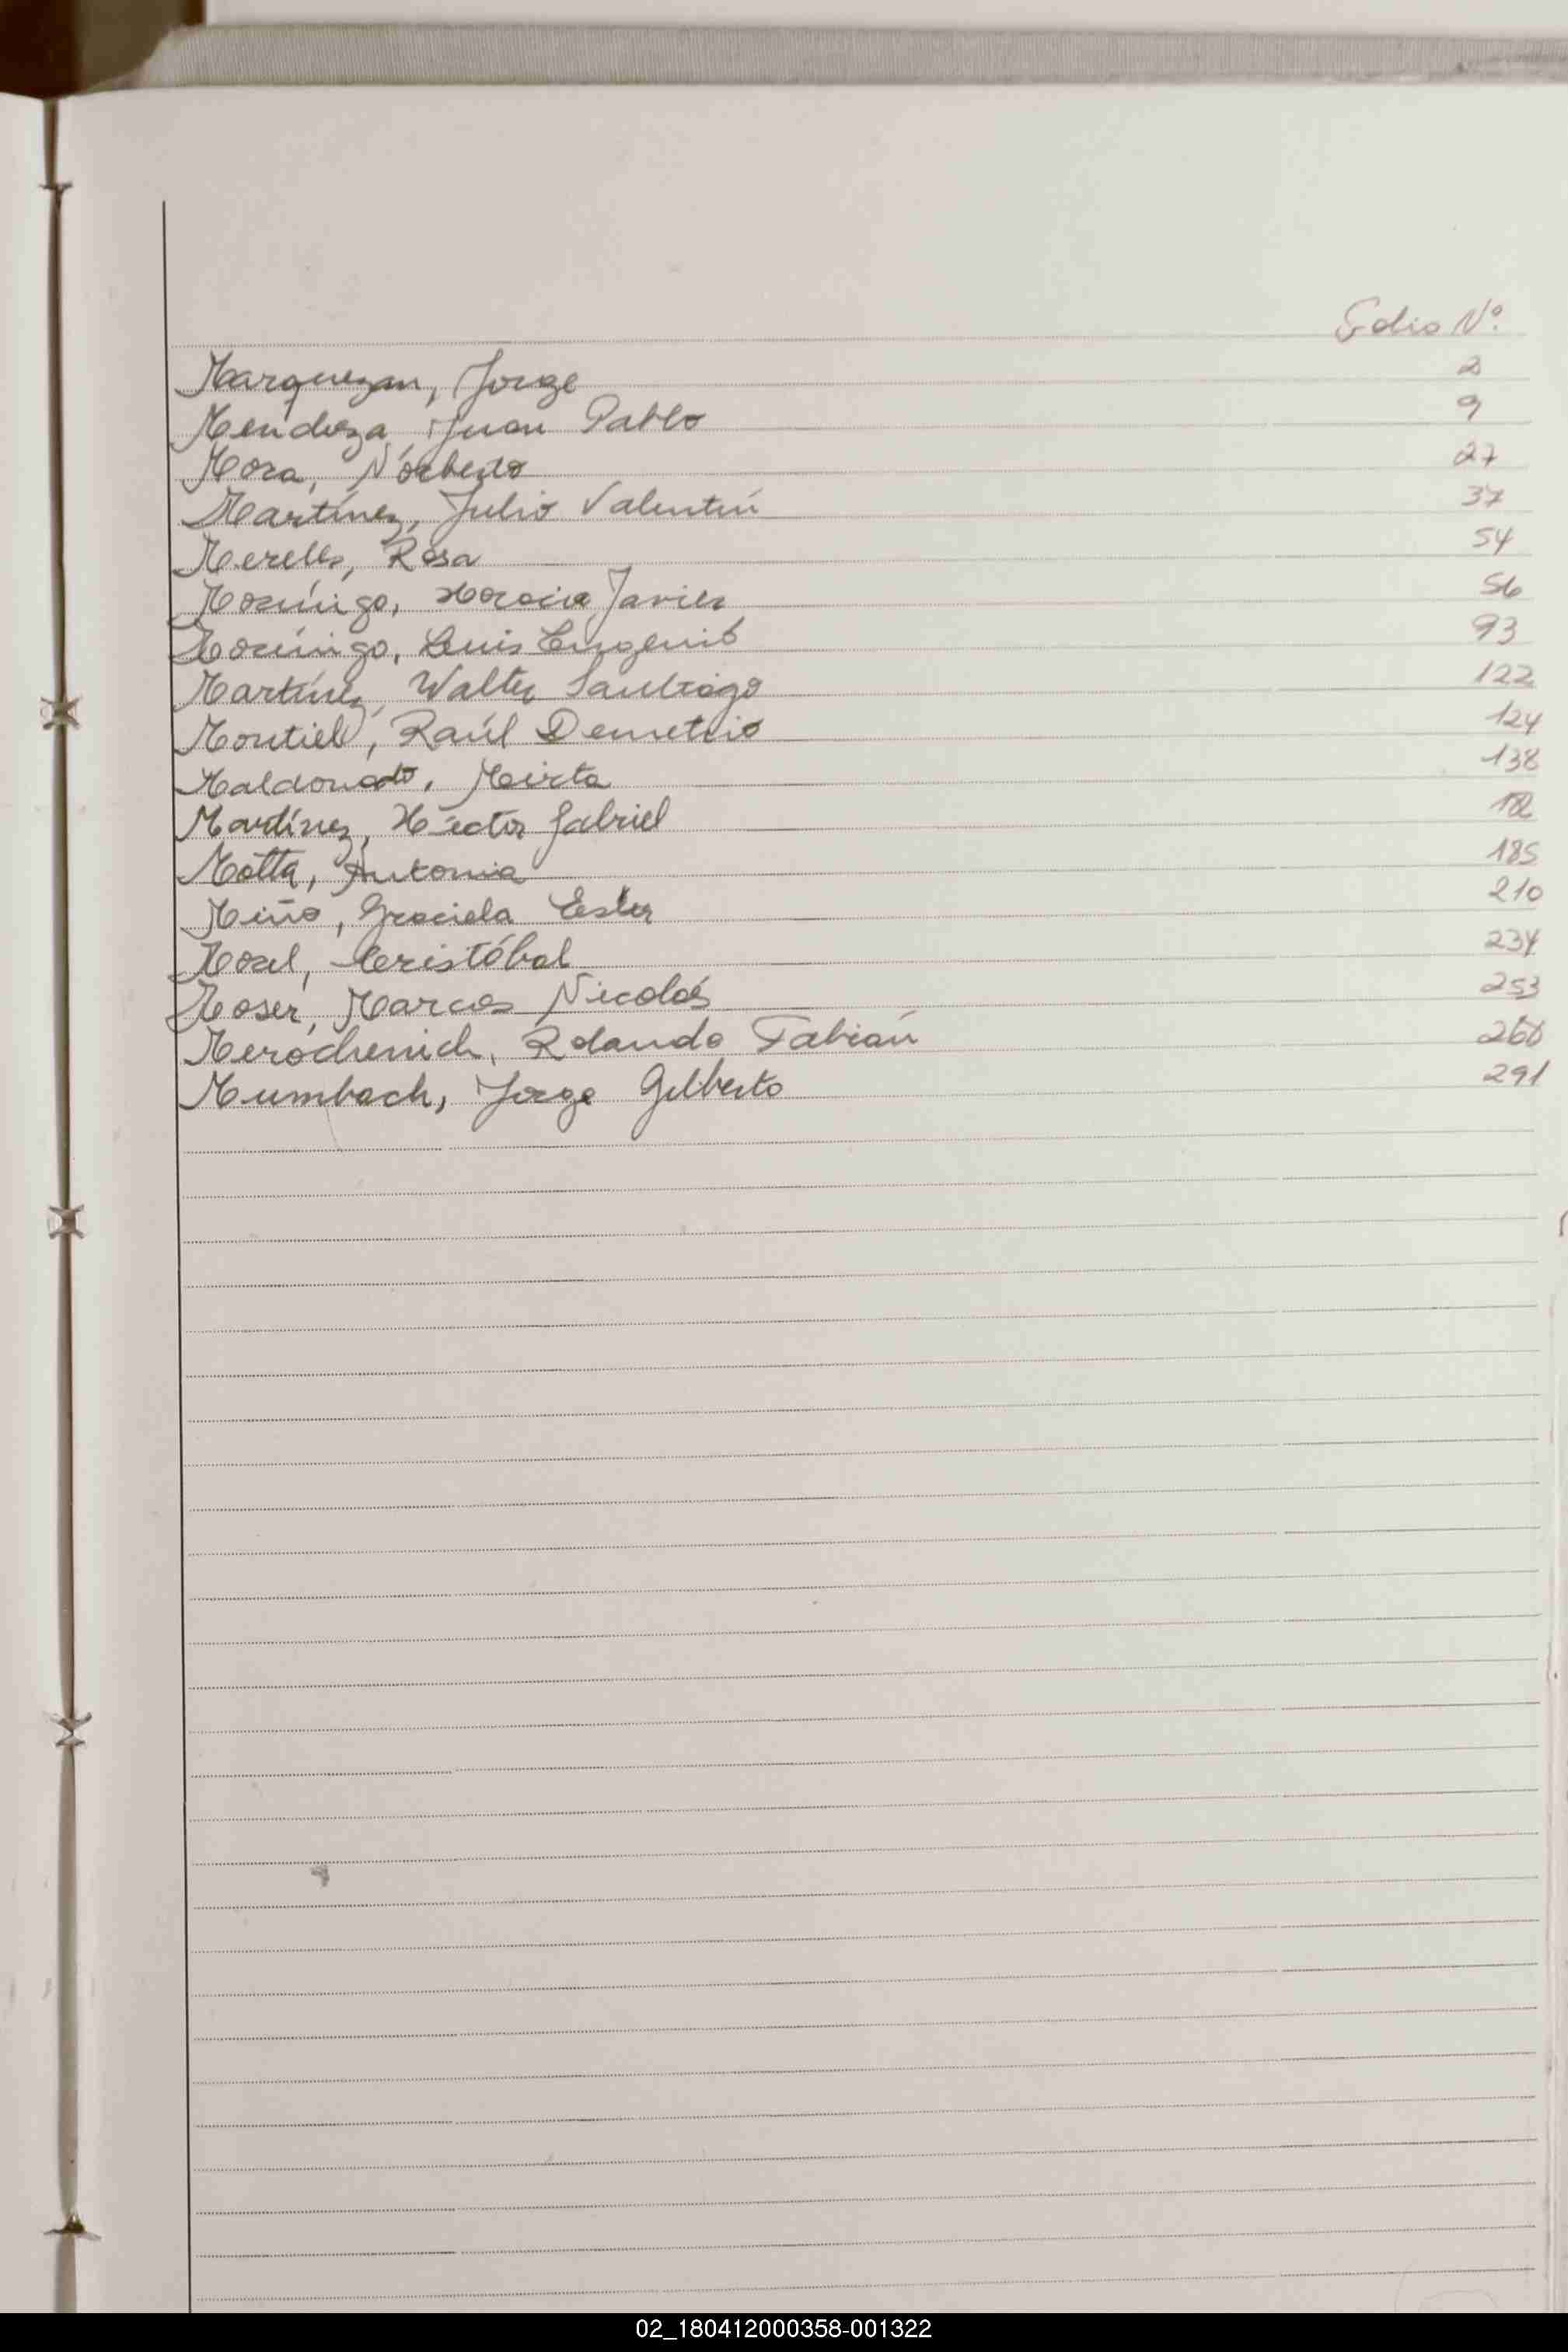 Folio Nº
Marquezan, Jorge 2
Mendoza, Juan Pablo 9
Mora, Norberto 27
Martínez, Julio Valentín 37
Merelles, Rosa 54
Morínigo, Horacio Javier 56
Morínigo, Luis Eugenio 93
Martínez, Walter Santiago 122
Montiel, Raúl Demetrio 124
Maldonado, Mirta 138
Martínez, Héctor Gabriel
Motta, Antonia 185
Miño, Graciela Ester 210
Morel, Cristóbal 234
Moser, Marcos Nicolás 253
Merochenich, Rolando Fabián 260
Mumbach, Jorge Gilberto 291
02_180412000358-001322